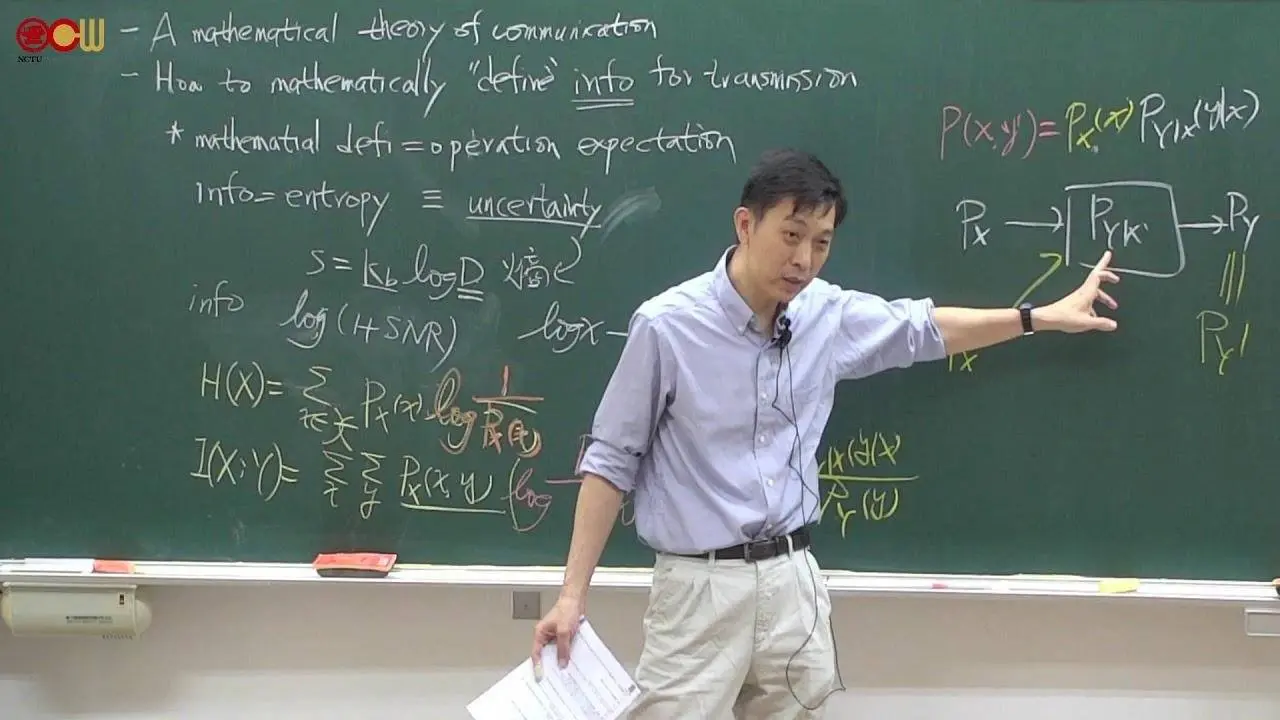 NCTU
OCW
- A mathematical theory of communication
- How to mathematically "define" info for transmission
* mathematial defi = operation expectation
info = entropy ≡ uncertainty
S = k_b log D 熵
info log(1+SNR) log x -
H(X) = Σ_{x∈𝒳} P_X(x) log 1/P_X(x)
I(X;Y) = Σ_x Σ_y P_X(x,y) (log
(y|x)
P_Y(y)
P(x,y) = P_X(x) P_{Y|X}(y|x)
P_X → P_{Y|X} → P_Y
P_X
P_Y'